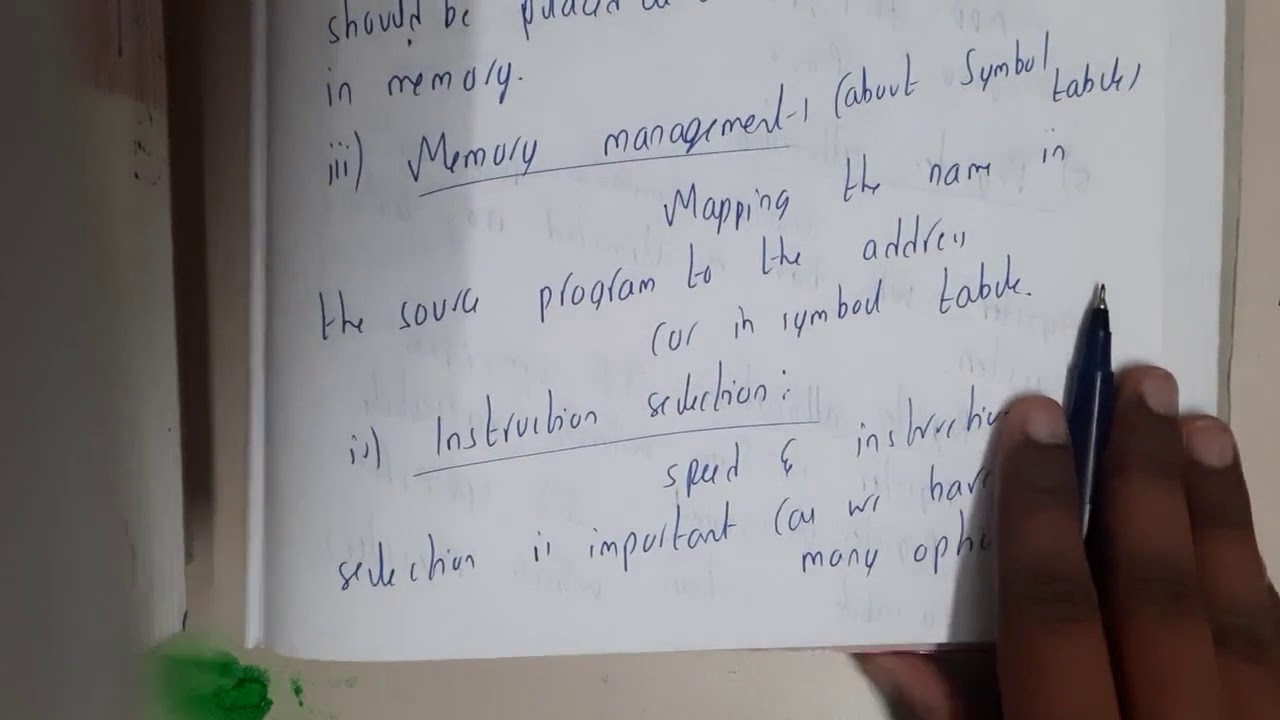 should be
in memory.
iii) Memory management-1 (about symbol table)
Mapping the name in
the source program to the address
(or in symbol table.
iv) Instruction selection:
speed &
selection is important (as we have
many